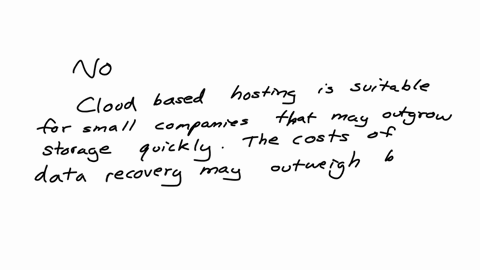 No
Cloud based hosting is suitable
for small companies that may outgrow
storage quickly. The costs of
data recovery may outweigh b